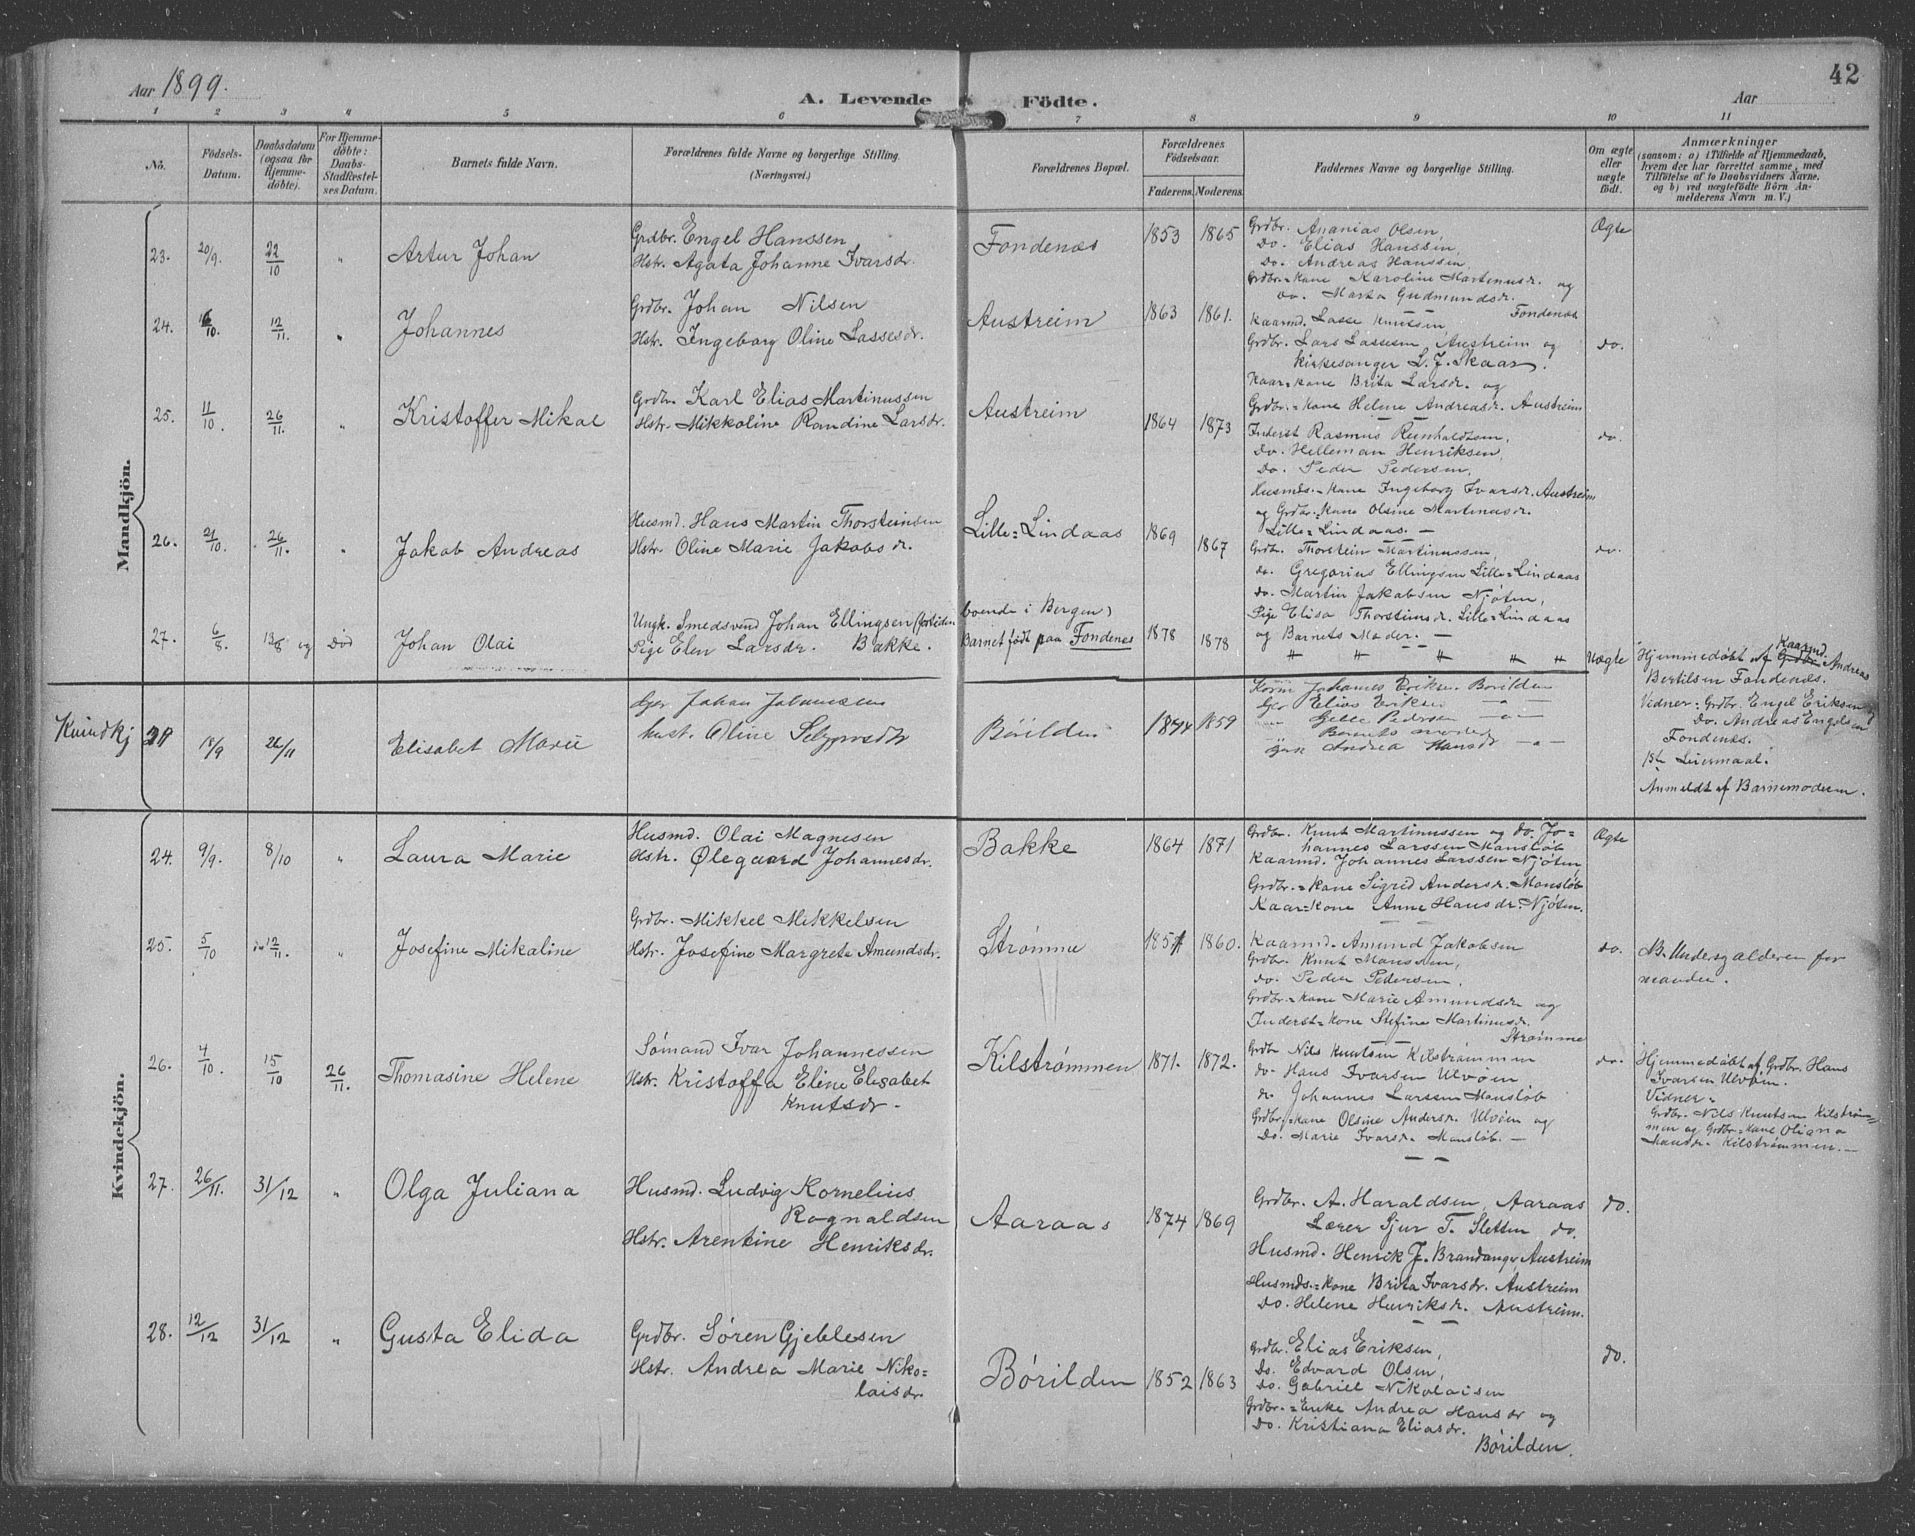 Aar 1899.
A. Levende Födte.
Aar
42
1 2 3 4 5 6 7 8 9 10 11
No.
Födsels-Datum.
Daabsdatum (ogsaa for Hjemmedöbte).
For Hjemmedöbte: Daabs-Stadfæstelses Datum.
Barnets fulde Navn.
Forældrenes fulde Navne og borgerlige Stilling. (Næringsvei.)
Forældrenes Bopæl.
Forældrenes Födselsaar.
Faderens. Moderens.
Faddernes Navne og borgerlige Stilling.
Om ægte eller uægte födt.
Anmærkninger
(saasom: a) i Tilfælde af Hjemmedaab, hvem der har forrettet samme, med Tilföielse af to Daabsvidners Navne, og b) ved uægtefödte Börn Anmelderens Navn m. V.)
Mandkjön.
23. 20/9. 22/10 " Artur Johan
Grdbr. Engel Hanssen
Hstr. Agata Johanne Ivarsdr.
Fondenæs 1853 1865
Grdbr. Ananias Olsen,
Do. Elias Hanssen,
Do. Andreas Hanssen
Grdbr.=Kone Karoline Martinusdr. og
do. Marta Gudmundsdr.
Fondenæs
Ægte
24. 16/10. 12/11. " Johannes
Grdbr. Johan Nilsen
Hstr. Ingeborg Oline Lassesdr.
Austreim 1863 1861.
Kaarmd. Lasse Knutsen,
Grdbr. Lars Lassesen, Austreim og
Kirkesanger L. J. Skaar.
Kaar=kone Brita Larsdr. og
Grdbr.=Kone Helene Andreasdr. Austreim
do.
25. 11/10 26/11. " Kristoffer Mikal
Grdbr. Karl Elias Martinussen
Hstr. Mikkoline Randine Larsdr.
Austreim 1864 1873
Inderst Rasmus Reinholdtsen,
Do. Helleman Henriksen,
Do. Peder Pedersen,
Husmds.=Kone Ingeborg Ivarsdr. Austreim
og Grdbr. Kone Olsine Martinusdr.
Lille=Lindaas. —
do.
26. 21/10. 26/11. " Jakob Andreas
Husmd. Hans Martin Thorsteinsen
Hstr. Oline Marie Jakobsdr.
Lille=Lindaas 1869 1867
Grdbr. Thorstein Martinussen,
do. Gregorius Ellingsen Lille=Lindaas
do. Martin Jakobsen Njøten,
Pige Elisa Thorsteinsdr. Lille=Lindaas
og Barnets Moder. —
do.
27. 6/8. 13/8 og Död Johan Olai
Ungk. Smedsvend Johan Ellingsen
Pige Elen Larsdr. Bakke.
boende i Bergen,
Barnet født paa Fondenes 1878 1878
" " " " "
Uægte
Hjemmedøbt af Kaarmd. Andreas
Bertilsen Fondenæs.
Vidner: Grdbr. Engel Eriksen
Do. Andreas Engelsen
Fondenæs.
1ste Leiermaal.
Anmeldt af Barnemoderen.
Kvindkj
18/9 26/11 Elisabet Marie
Johan Johannessen
hust. Oline
Börilden 1844 1859
Johannes Eriksen Börilden
Elias Eriksen — " —
Pedersen — " —
Barnets moder
Andrea Hansdr — " —
Kvindekjön.
24. 9/9. 8/10 " Laura Marie
Husmd. Olai Magnesen
Hstr. Ølegaard Johannesdr.
Bakke 1864 1871
Grdbr. Knut Martinussen og do. Jo=
hannes Larssen Mansløb
Kaarmd. Johannes Larssen Njøten,
Grdbr.=Kone Sigrid Andersdr. Mansløb
Kaar=kone Anne Hansdr. Njøten.
Ægte
25. 5/10 12/11. " Josefine Mikaline
Grdbr. Mikkel Mikkelsen
Hstr. Josefine Margrete Amundsdr.
Strømme 1860.
Kaarmd. Amund Jakobsen
Grdbr. Knut Monssen,
do. Peder Pedersen,
Grdbr.=Kone Marie Amundsdr og
Inderst=Kone Stefine Martinusdr.
Strømme
do.
26. 4/10. 15/10 26/11. Thomasine Helene
Sømand Ivar Johannessen
Hstr. Kristoffa Eline Elisabet
Knutsdr.
Kilstrømmen 1871. 1872.
Grdbr Nils Knutsen Kilstrømmen
do. Hans Ivarsen Ulvøen
do. Johannes Larssen Mansløb
Grdbr.=Kone Olsine Andersdr. Ulvøen og
Do. Marie Ivarsdr. Mansløb. —
do.
Hjemmedøbt af Grdbr. Hans
Ivarsen Ulvøen.
Vidner:
Grdbr. Nils Knutsen Kilstrøm=
men og Grdbr.=Kone Oliana
Kilstrømmen. —
27. 26/11. 31/12 " Olga Juliana
Husmd. Ludvig Kornelius
Rognaldsen
Hstr. Arentine Henriksdr.
Aaraas 1874 1869
Grdbr. A. Haraldsen, Aaraas
Lærer Sjur T. Sletten do.
Husmd. Henrik J. Brandanger, Austreim
Husmds.=Kone Brita Ivarsdr. Austreim
Do. Helene Henriksdr. Austreim.
do.
28. 12/12 31/12 " Gusta Elida
Grdbr. Søren Gjeblesen
Hstr. Andrea Marie Niko=
laisdr.
Børilden 1852 1863
Grdbr. Elias Eriksen,
Do. Edvard Olsen,
Do. Gabriel Nikolaisen
Grdbr.=Enke Andrea Hansdr og
Do. Kristiana Eliasdr.
Børilden.
do.